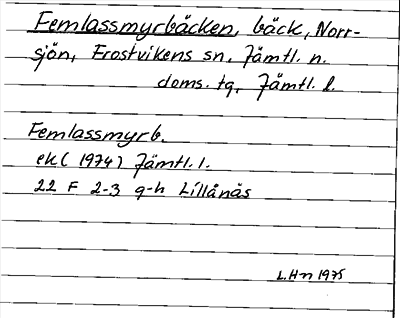 Femlassmyrbäcken, bäck, Norr-
sjön, Frostvikens sn, Jämtl. n.
doms. tg, Jämtl. l.
Femlassmyrb.
ek (1974) Jämtl. l.
22 F 2-3 g-h Lillånäs
L.Hn 1975